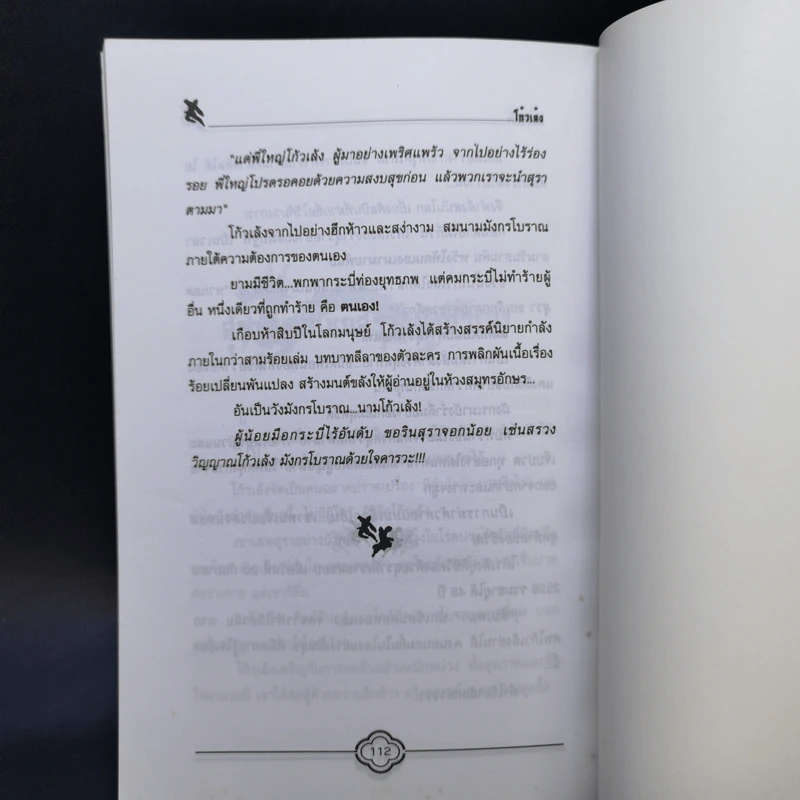 โก้วเล้ง
"แต่พี่ใหญ่โก้วเล้ง ผู้มาอย่างเพริศแพร้ว จากไปอย่างไร้ร่อง
รอย พี่ใหญ่โปรดรอคอยด้วยความสงบสุขก่อน แล้วพวกเราจะนำสุรา
ตามมา"
โก้วเล้งจากไปอย่างฮึกห้าวและสง่างาม สมนามมังกรโบราณ
ภายใต้ความต้องการของตนเอง
ยามมีชีวิต...พกพากระบี่ท่องยุทธภพ แต่คมกระบี่ไม่ทำร้ายผู้
อื่น หนึ่งเดียวที่ถูกทำร้าย คือ ตนเอง!
เกือบห้าสิบปีในโลกมนุษย์ โก้วเล้งได้สร้างสรรค์นิยายกำลัง
ภายในกว่าสามร้อยเล่ม บทบาทลีลาของตัวละคร การพลิกผันเนื้อเรื่อง
ร้อยเปลี่ยนพันแปลง สร้างมนต์ขลังให้ผู้อ่านอยู่ในห้วงสมุทรอักษร...
อันเป็นวังมังกรโบราณ...นามโก้วเล้ง!
ผู้น้อยมือกระบี่ไร้อันดับ ขอรินสุราจอกน้อย เซ่นสรวง
วิญญาณโก้วเล้ง มังกรโบราณด้วยใจคารวะ!!!
112